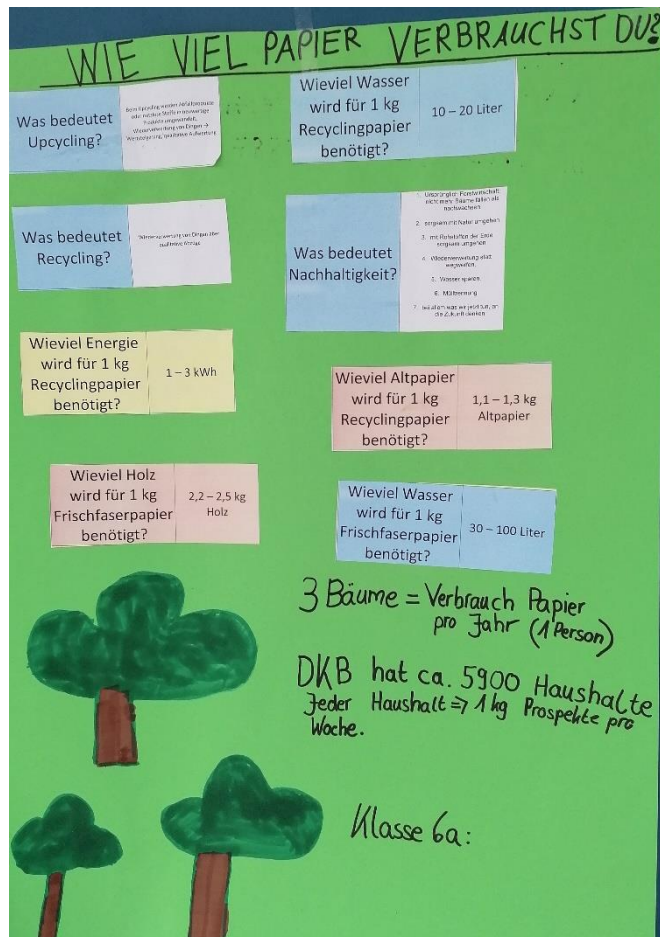 WIE VIEL PAPIER VERBRAUCHST DU?
Was bedeutet
Upcycling?
Beim Upcycling werden Abfallprodukte
oder nutzlose Stoffe in neuwertige
Produkte umgewandelt.
Wiederverwertung von Dingen →
Wertsteigerung, qualitative Aufwertung
Wieviel Wasser
wird für 1 kg
Recyclingpapier
benötigt?
10 – 20 Liter
Was bedeutet
Recycling?
Wiederverwertung von Dingen
qualitative
Was bedeutet
Nachhaltigkeit?
1. Ursprünglich Forstwirtschaft
nicht mehr Bäume fällen als
nachwachsen
2. sorgsam mit Natur umgehen
3. mit Rohstoffen der Erde
sorgsam umgehen
4. Wiederverwertung statt
wegwerfen
5. Wasser sparen
6. Mülltrennung
7. bei allem was wir jetzt tun, an
die Zukunft denken
Wieviel Energie
wird für 1 kg
Recyclingpapier
benötigt?
1 – 3 kWh
Wieviel Altpapier
wird für 1 kg
Recyclingpapier
benötigt?
1,1 – 1,3 kg
Altpapier
Wieviel Holz
wird für 1 kg
Frischfaserpapier
benötigt?
2,2 – 2,5 kg
Holz
Wieviel Wasser
wird für 1 kg
Frischfaserpapier
benötigt?
30 – 100 Liter
3 Bäume = Verbrauch Papier
pro Jahr (1 Person)
DKB hat ca. 5900 Haushalte
Jeder Haushalt => 1 kg Prospekte pro
Woche.
Klasse 6a: